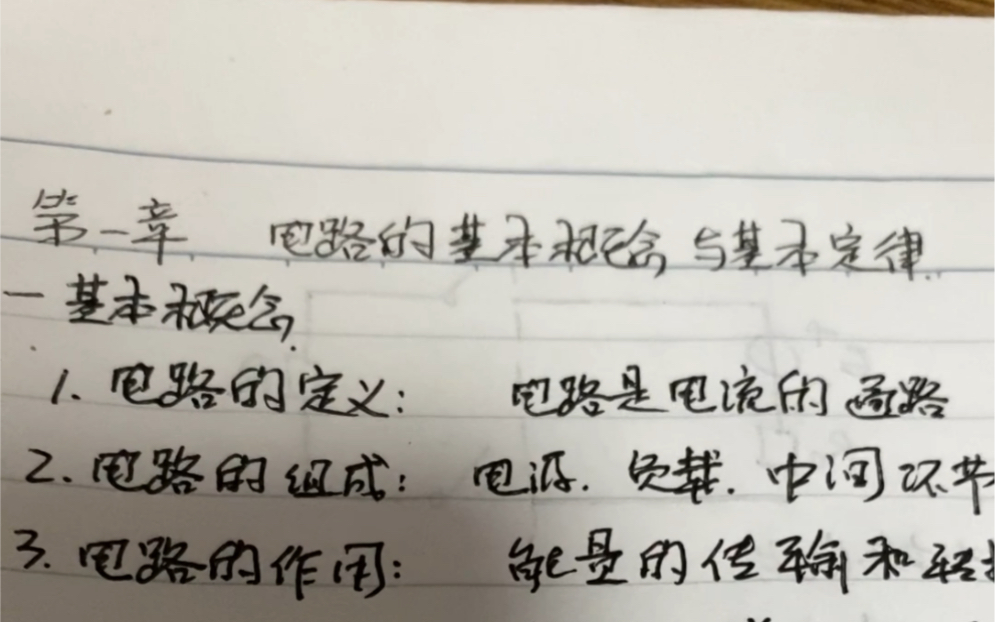 第一章 电路的基本概念与基本定律
一 基本概念
1. 电路的定义： 电路是电流的通路
2. 电路的组成： 电源. 负载. 中间环节
3. 电路的作用： 能量的传输和转